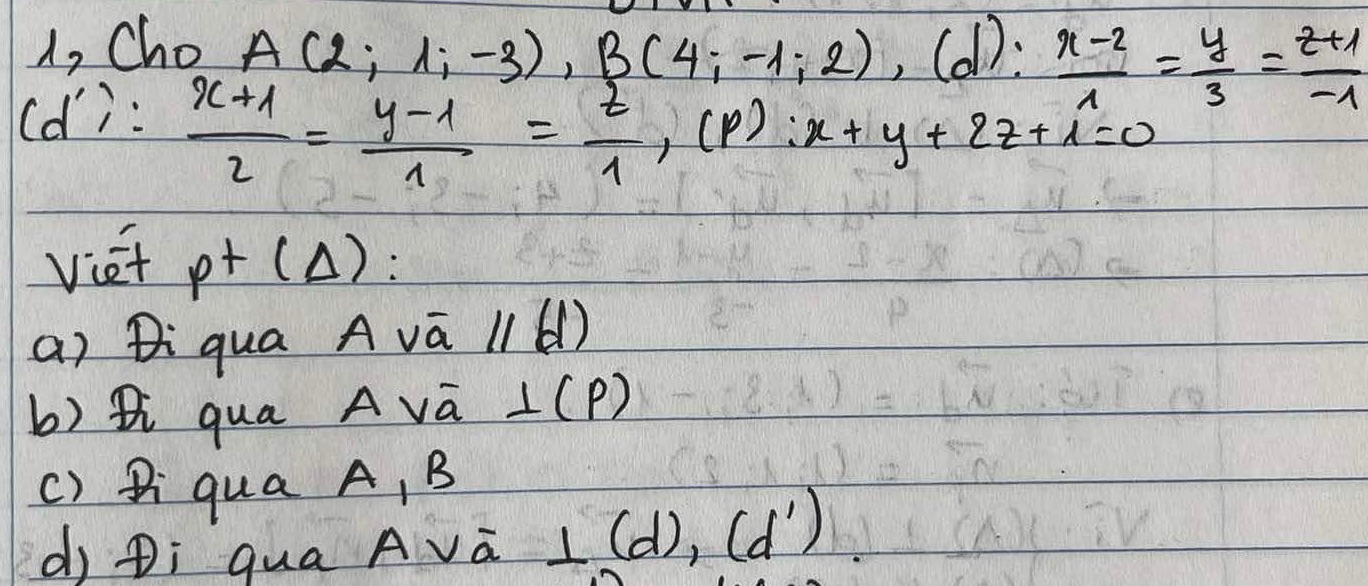 1, Cho A(2; 1; -3), B(4; -1; 2), (d): \frac{x-2}{1} = \frac{y}{3} = \frac{z+1}{-1}
(d'): \frac{x+1}{2} = \frac{y-1}{1} = \frac{z}{1}, (P): x + y + 2z + 1 = 0
Viết pt (Δ):
a) Đi qua A và // (d)
b) Đi qua A và ⊥ (P)
c) Đi qua A, B
d) Đi qua A và ⊥ (d), (d').